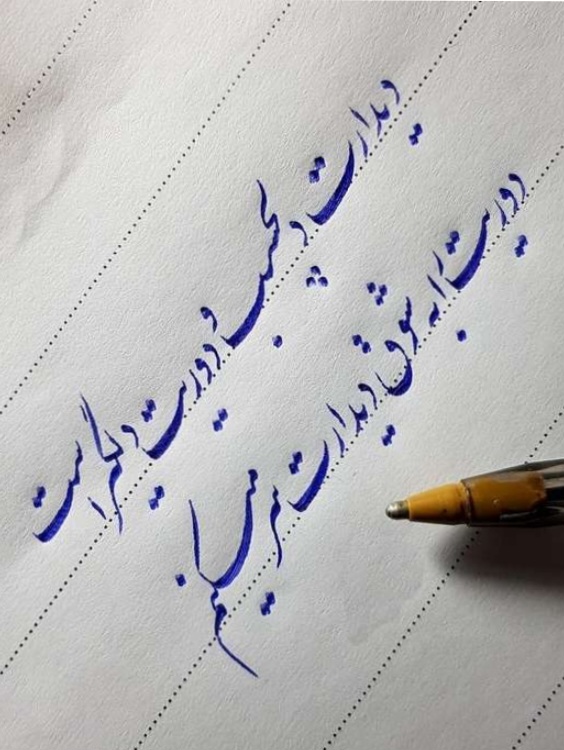 دیدارت دلچسب و دوریت دلگیر است
دوریت را به شوق دیدارت سر میکنم